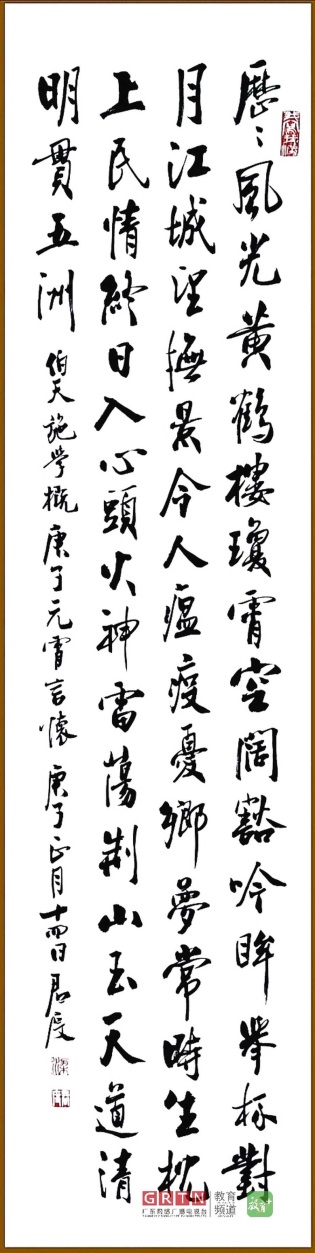 歷〻風光黄鶴樓瓊霄空闊豁吟眸舉杯對
月江城望撫景令人瘟疫憂鄉夢常時生枕
上民情終日入心頭火神雷蕩荆山玉天道清
明貫五洲
伯天施學概庚子元宵言懷 庚子正月十四日 君度
GRTN 教育频道
广东网络广播电视台
教育+